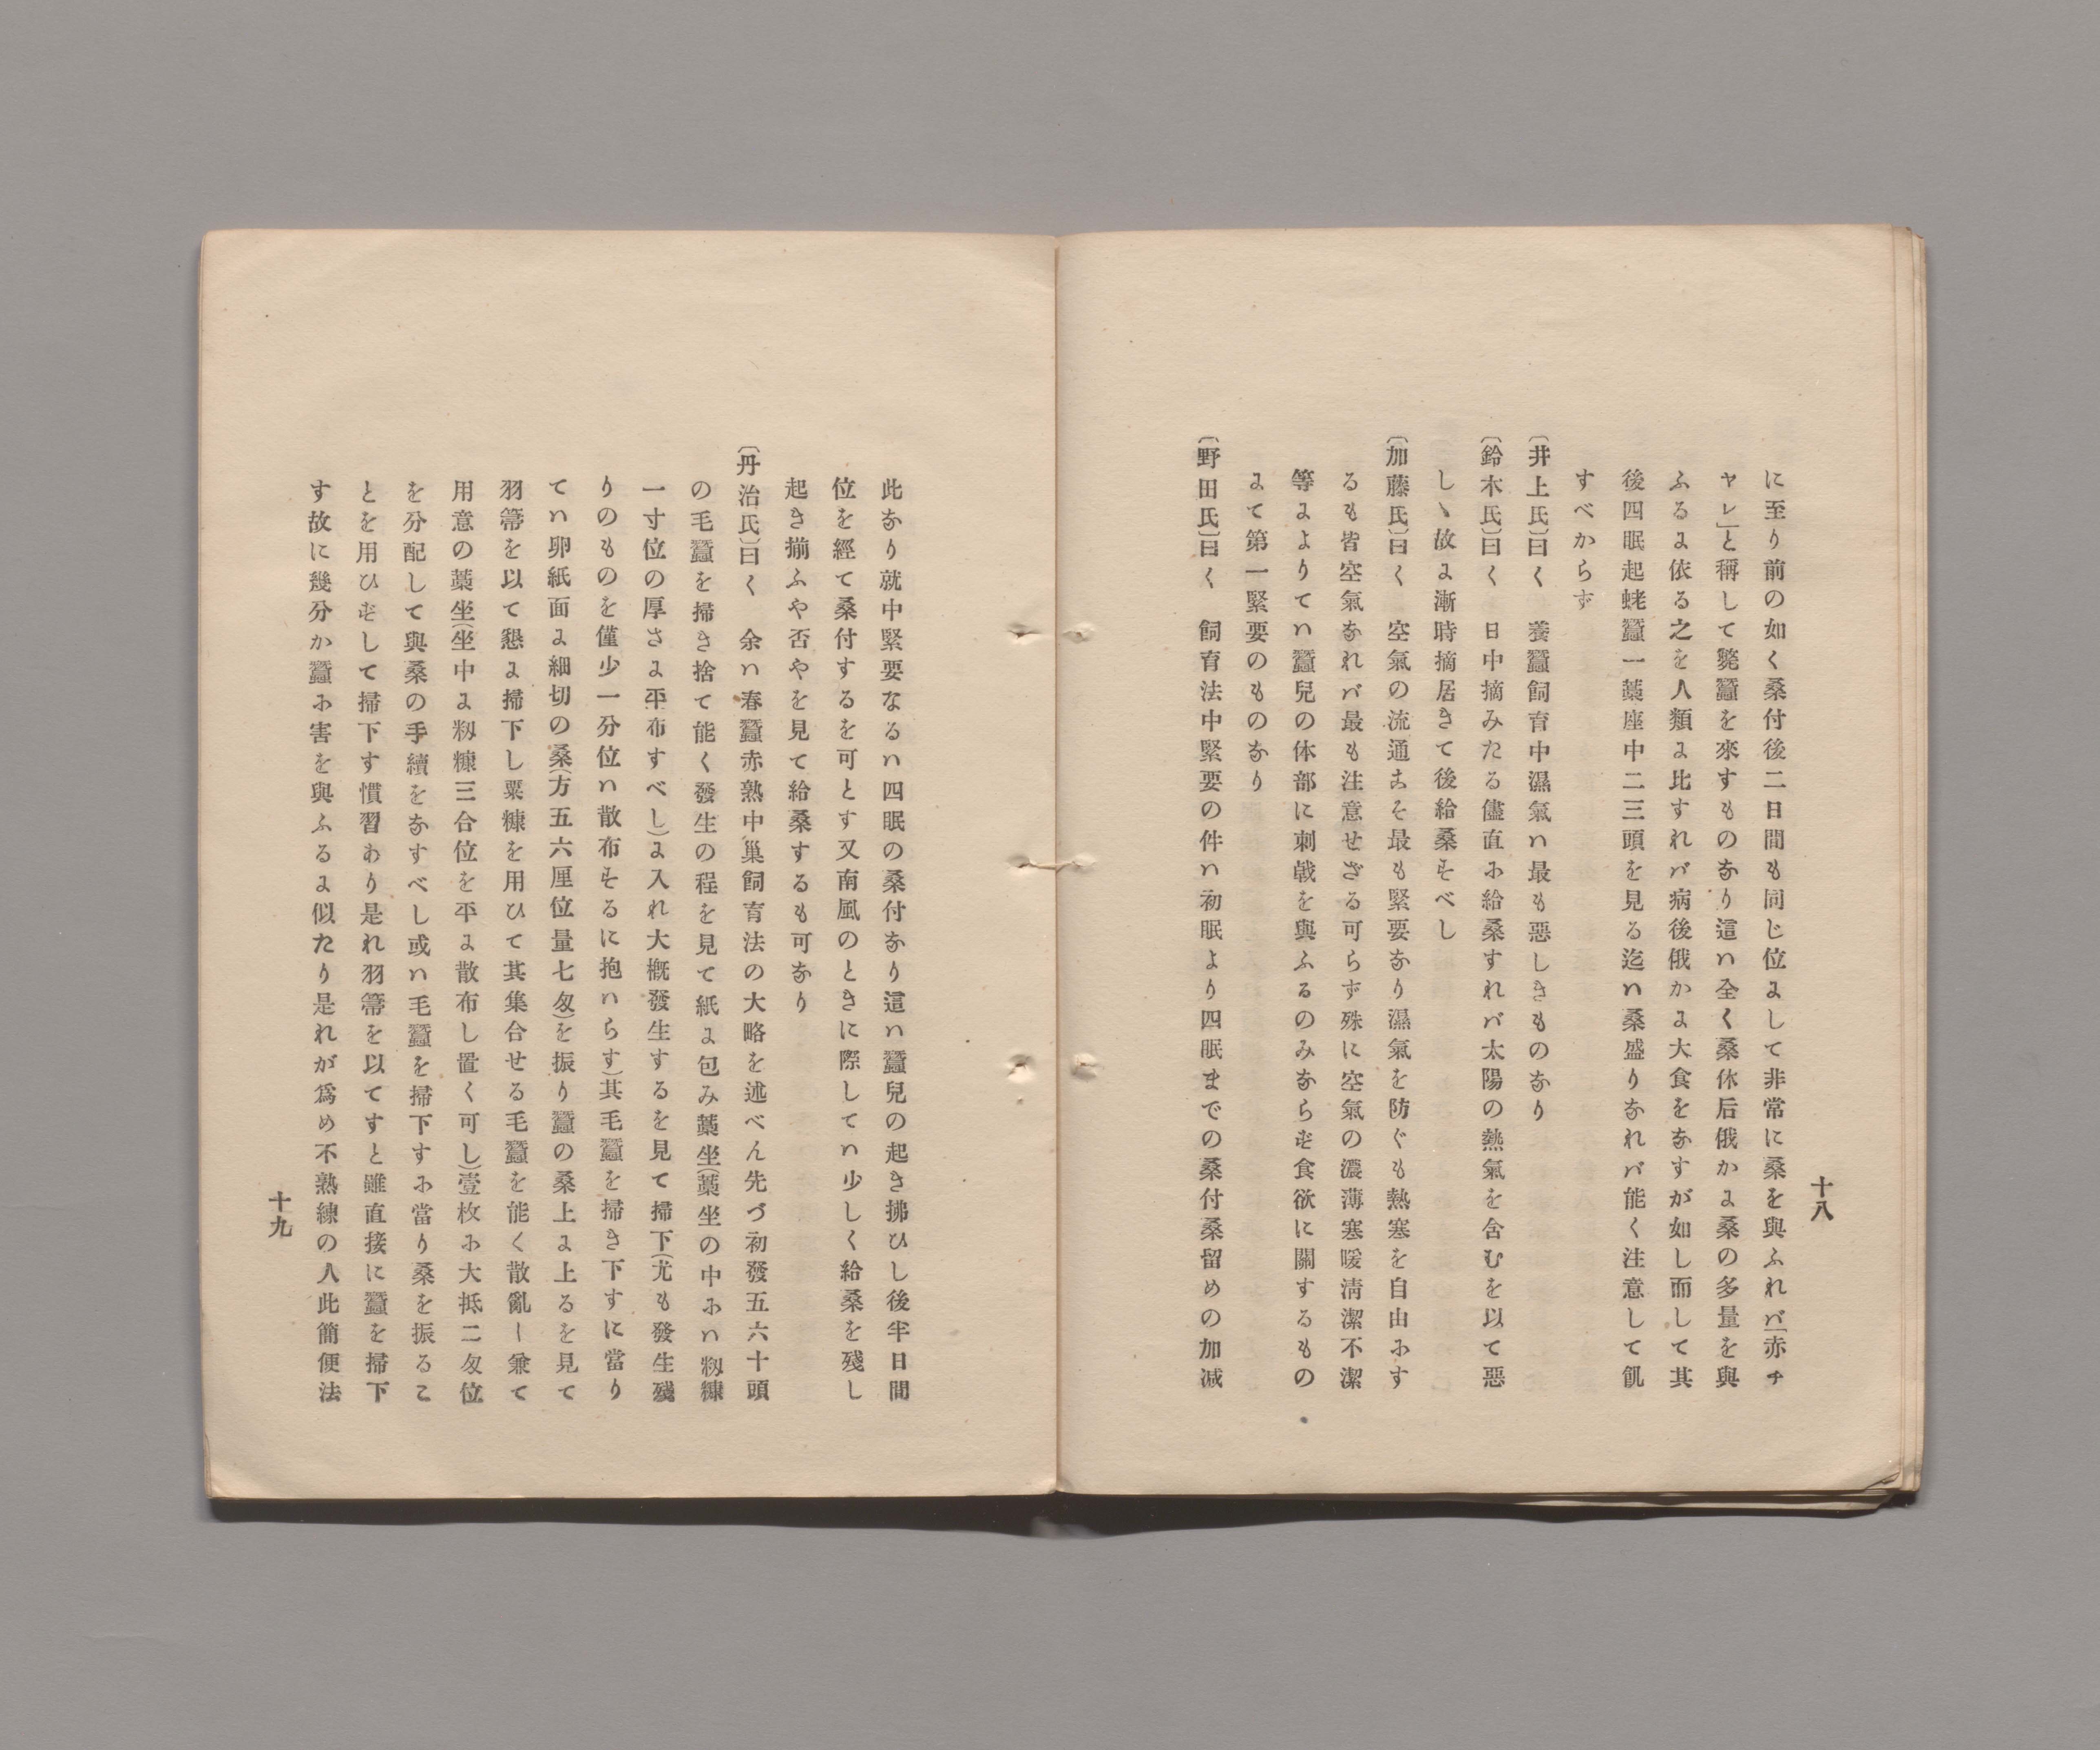 十八
に至り前の如く桑付後二日間も同じ位よして非常に桑を與ふれバ「赤チ
ヤレ」と稱して斃蠶を來すものなり這ハ全く桑休后俄かよ桑の多量を與
ふるよ依る之を人類よ比すれバ病後俄かよ大食をなすが如し而して其
後四眠起蛯蠶一藁座中二三頭を見る迄ハ桑盛りなれバ能く注意して飢
すべからず
〔井上氏〕曰く 養蠶飼育中濕氣ハ最も惡しきものなり
〔鈴木氏〕曰く 日中摘みたる儘直に給桑すれバ太陽の熱氣を含むを以て惡
しゝ故よ漸時摘居きて後給桑すべし
〔加藤氏〕曰く 空氣の流通こそ最も緊要なり濕氣を防ぐも熱塞を自由にす
るも皆空氣なれバ最も注意せざる可らず殊に空氣の濃薄塞暖淸潔不潔
等よよりてハ蠶兒の体部に刺戟を與ふるのみならず食欲に關するもの
よて第一緊要のものなり
〔野田氏〕曰く 飼育法中緊要の件ハ初眠より四眠までの桑付桑留めの加减
此なり就中緊要なるハ四眠の桑付なり這ハ蠶兒の起き拂ひし後半日間
位を經て桑付するを可とす又南風のときに際してハ少しく給桑を殘し
起き揃ふや否やを見て給桑するも可なり
〔丹治氏〕曰く 余ハ春蠶赤熟中巢飼育法の大略を述べん先づ初發五六十頭
の毛蠶を掃き捨て能く發生の程を見て紙よ包み藁坐(藁坐の中にハ籾糠
一寸位の厚さよ平布すべし)よ入れ大槪發生するを見て掃下(尤も發生殘
りのものを僅少一分位ハ散布するに抱ハらす)其毛蠶を掃き下すに當り
てハ卵紙面よ細切の桑(方五六厘位量七匁)を振り蠶の桑上よ上るを見て
羽箒を以て懇よ掃下し粟糠を用ひて其集合せる毛蠶を能く散亂し兼て
用意の藁坐(坐中よ籾糠三合位を平よ散布し置く可し)壹枚に大抵二匁位
を分配して與桑の手續をなすべし或ハ毛蠶を掃下すに當り桑を振るこ
とを用ひずして掃下す慣習あり是れ羽箒を以てすと雖直接に蠶を掃下
す故に幾分か蠶に害を與ふるよ似たり是れが爲め不熟練の人此簡便法
十九